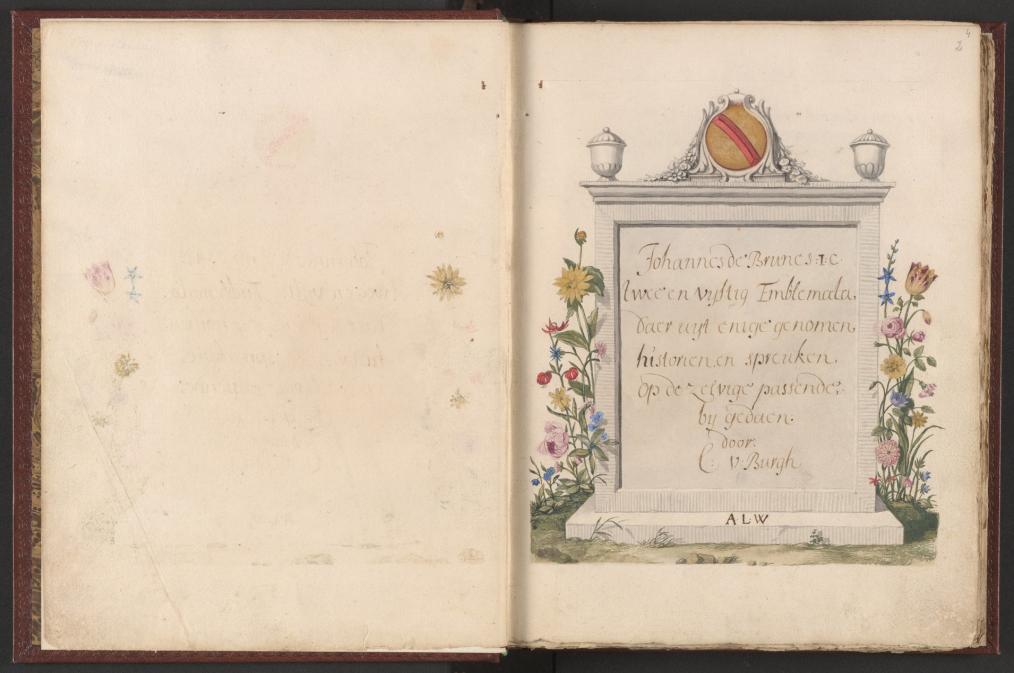 4
2
Johannes de Brunes: I: C
twee en vijftig Emblemata,
daer uijt enige genomen
historien, en spreuken
op de zelvige passende,
bij gedaen.
door:
C: v: Burgh
ALW